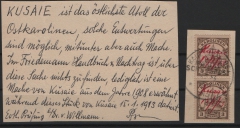 KUSAIE ist das östlichste Atoll der
Ostkarolinen, solche Entwertungen
sind möglich, mitunter aber auch Mache.
Im Friedemann Handbuch u. Nachtrag ist über
diese Sache nichts zu finden, lediglich ist eine
Mache von Kusaie aus dem Jahre 1908 erwähnt
während dieses Stück von Kusaie 15.1.1913 datiert.
Evtl. Prüfung d. Dr.